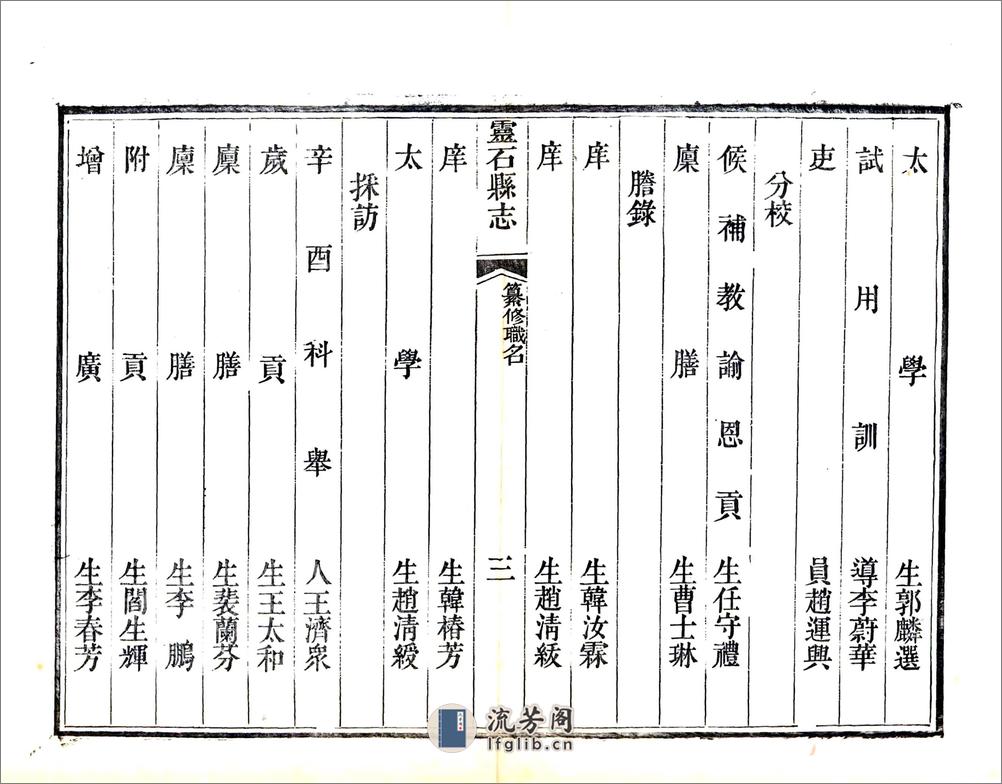 太學生郭麟選
試用訓導李蔚華
吏員趙運興
分校
候補教諭恩貢生任守禮
廩膳生曹士琳
謄錄
庠生韓汝霖
庠生趙清綏
靈石縣志
纂修職名
三
庠生韓椿芳
太學生趙清綬
採訪
辛酉科舉人王濟眾
歲貢生王太和
廩膳生裴蘭芬
廩膳生李鵬
附貢生閻生輝
增廣生李春芳
流芳阁
lfglib.cn